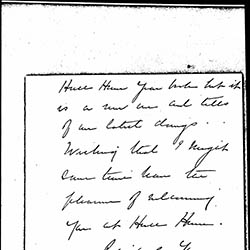 Hull House Year book but it
is a new one and tells
of our latest doings..
Wishing that I might
sometime have the
pleasure of welcoming
you at Hull House.